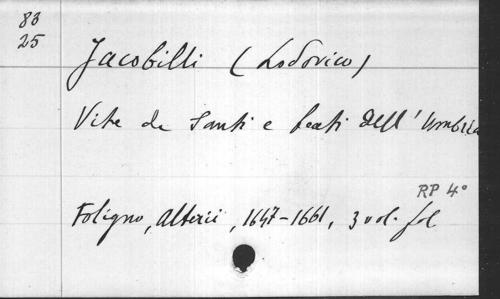 83
25
Jacobilli (Lodovico)
Vite de Santi e beati dell' Umbria
RP 4°
Foligno, Alterii, 1647-1661, 3 vol. fol